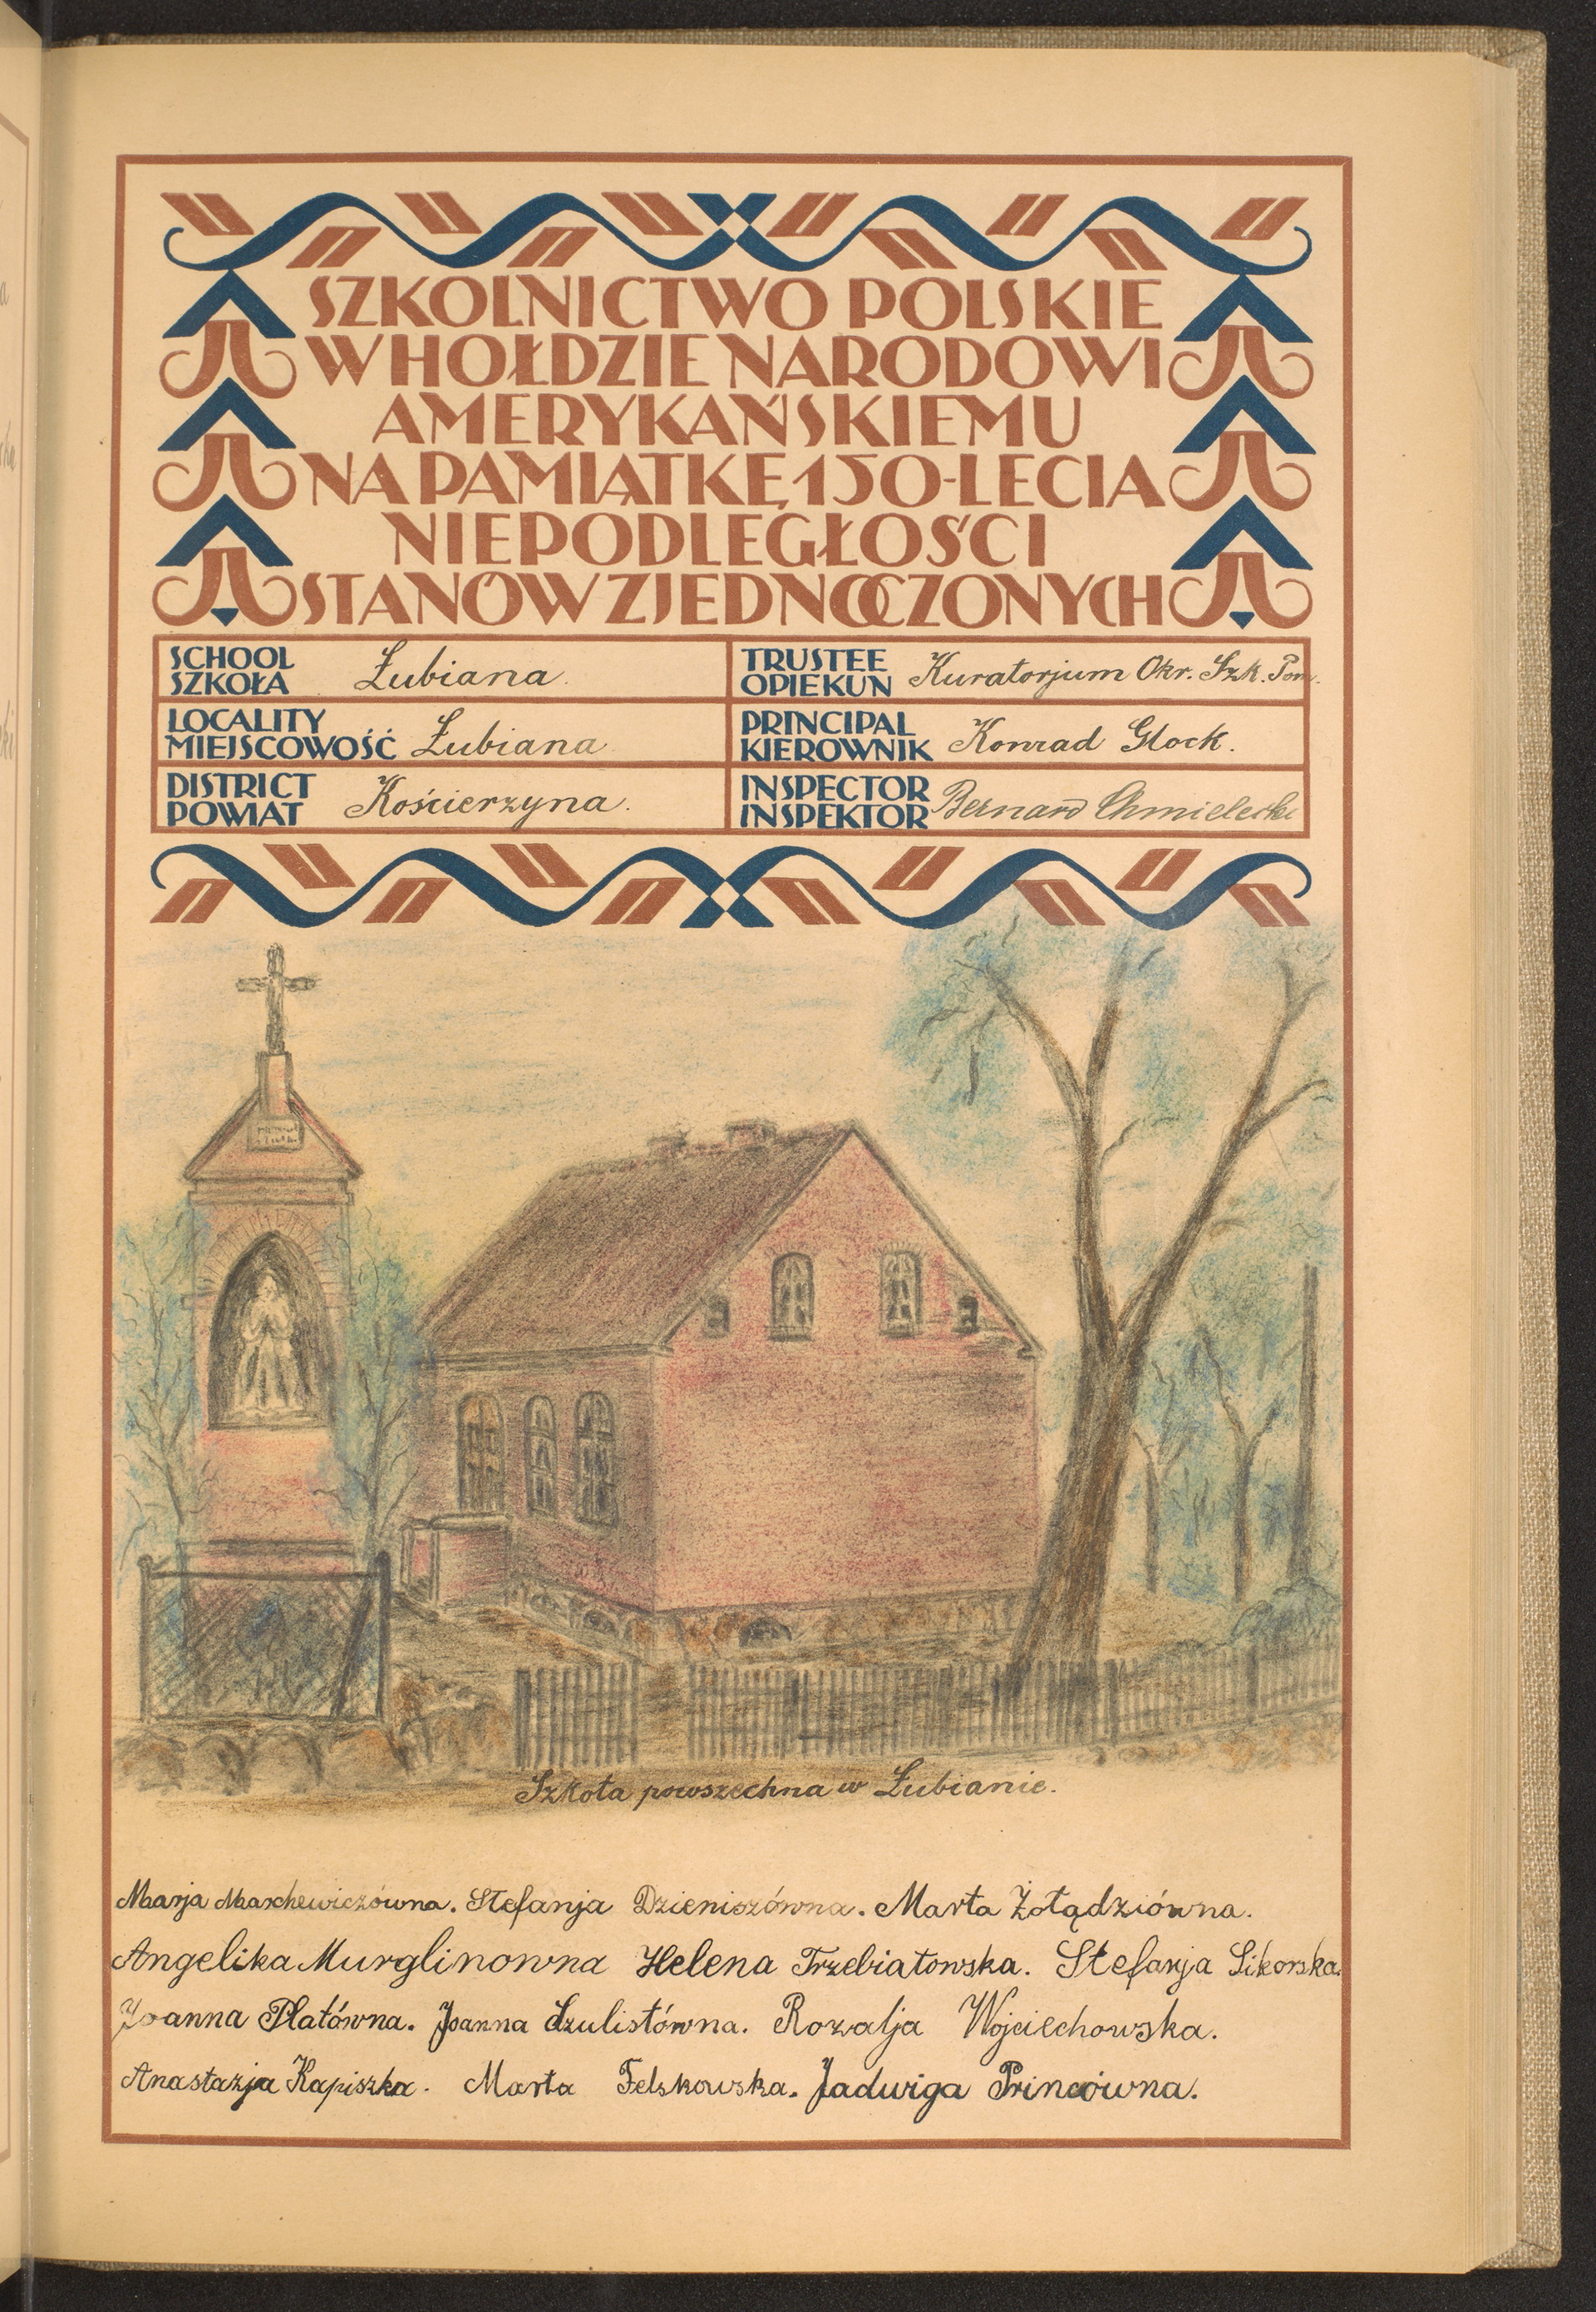 SZKOLNICTWO POLSKIE
W HOŁDZIE NARODOWI
AMERYKAŃSKIEMU
NA PAMIĄTKĘ 150-LECIA
NIEPODLEGŁOŚCI
STANÓW ZJEDNOCZONYCH
SCHOOL
SZKOŁA Łubiana.
TRUSTEE
OPIEKUN Kuratorjum Okr. Szk. Pom.
LOCALITY
MIEJSCOWOŚĆ Łubiana
PRINCIPAL
KIEROWNIK Konrad Glock.
DISTRICT
POWIAT Kościerzyna.
INSPECTOR
INSPEKTOR Bernard Chmielecki
Szkoła powszechna w Łubianie.
Marja Marchewiczówna. Stefanja Dzieniszówna. Marta Żołądziówna.
Angelika Murglinowna Helena Trzebiatowska. Stefanja Sikorska.
Joanna Platówna. Joanna Szulistówna. Rozalja Wojciechowska.
Anastazja Kapiszka. Marta Felskowska. Jadwiga Princówna.